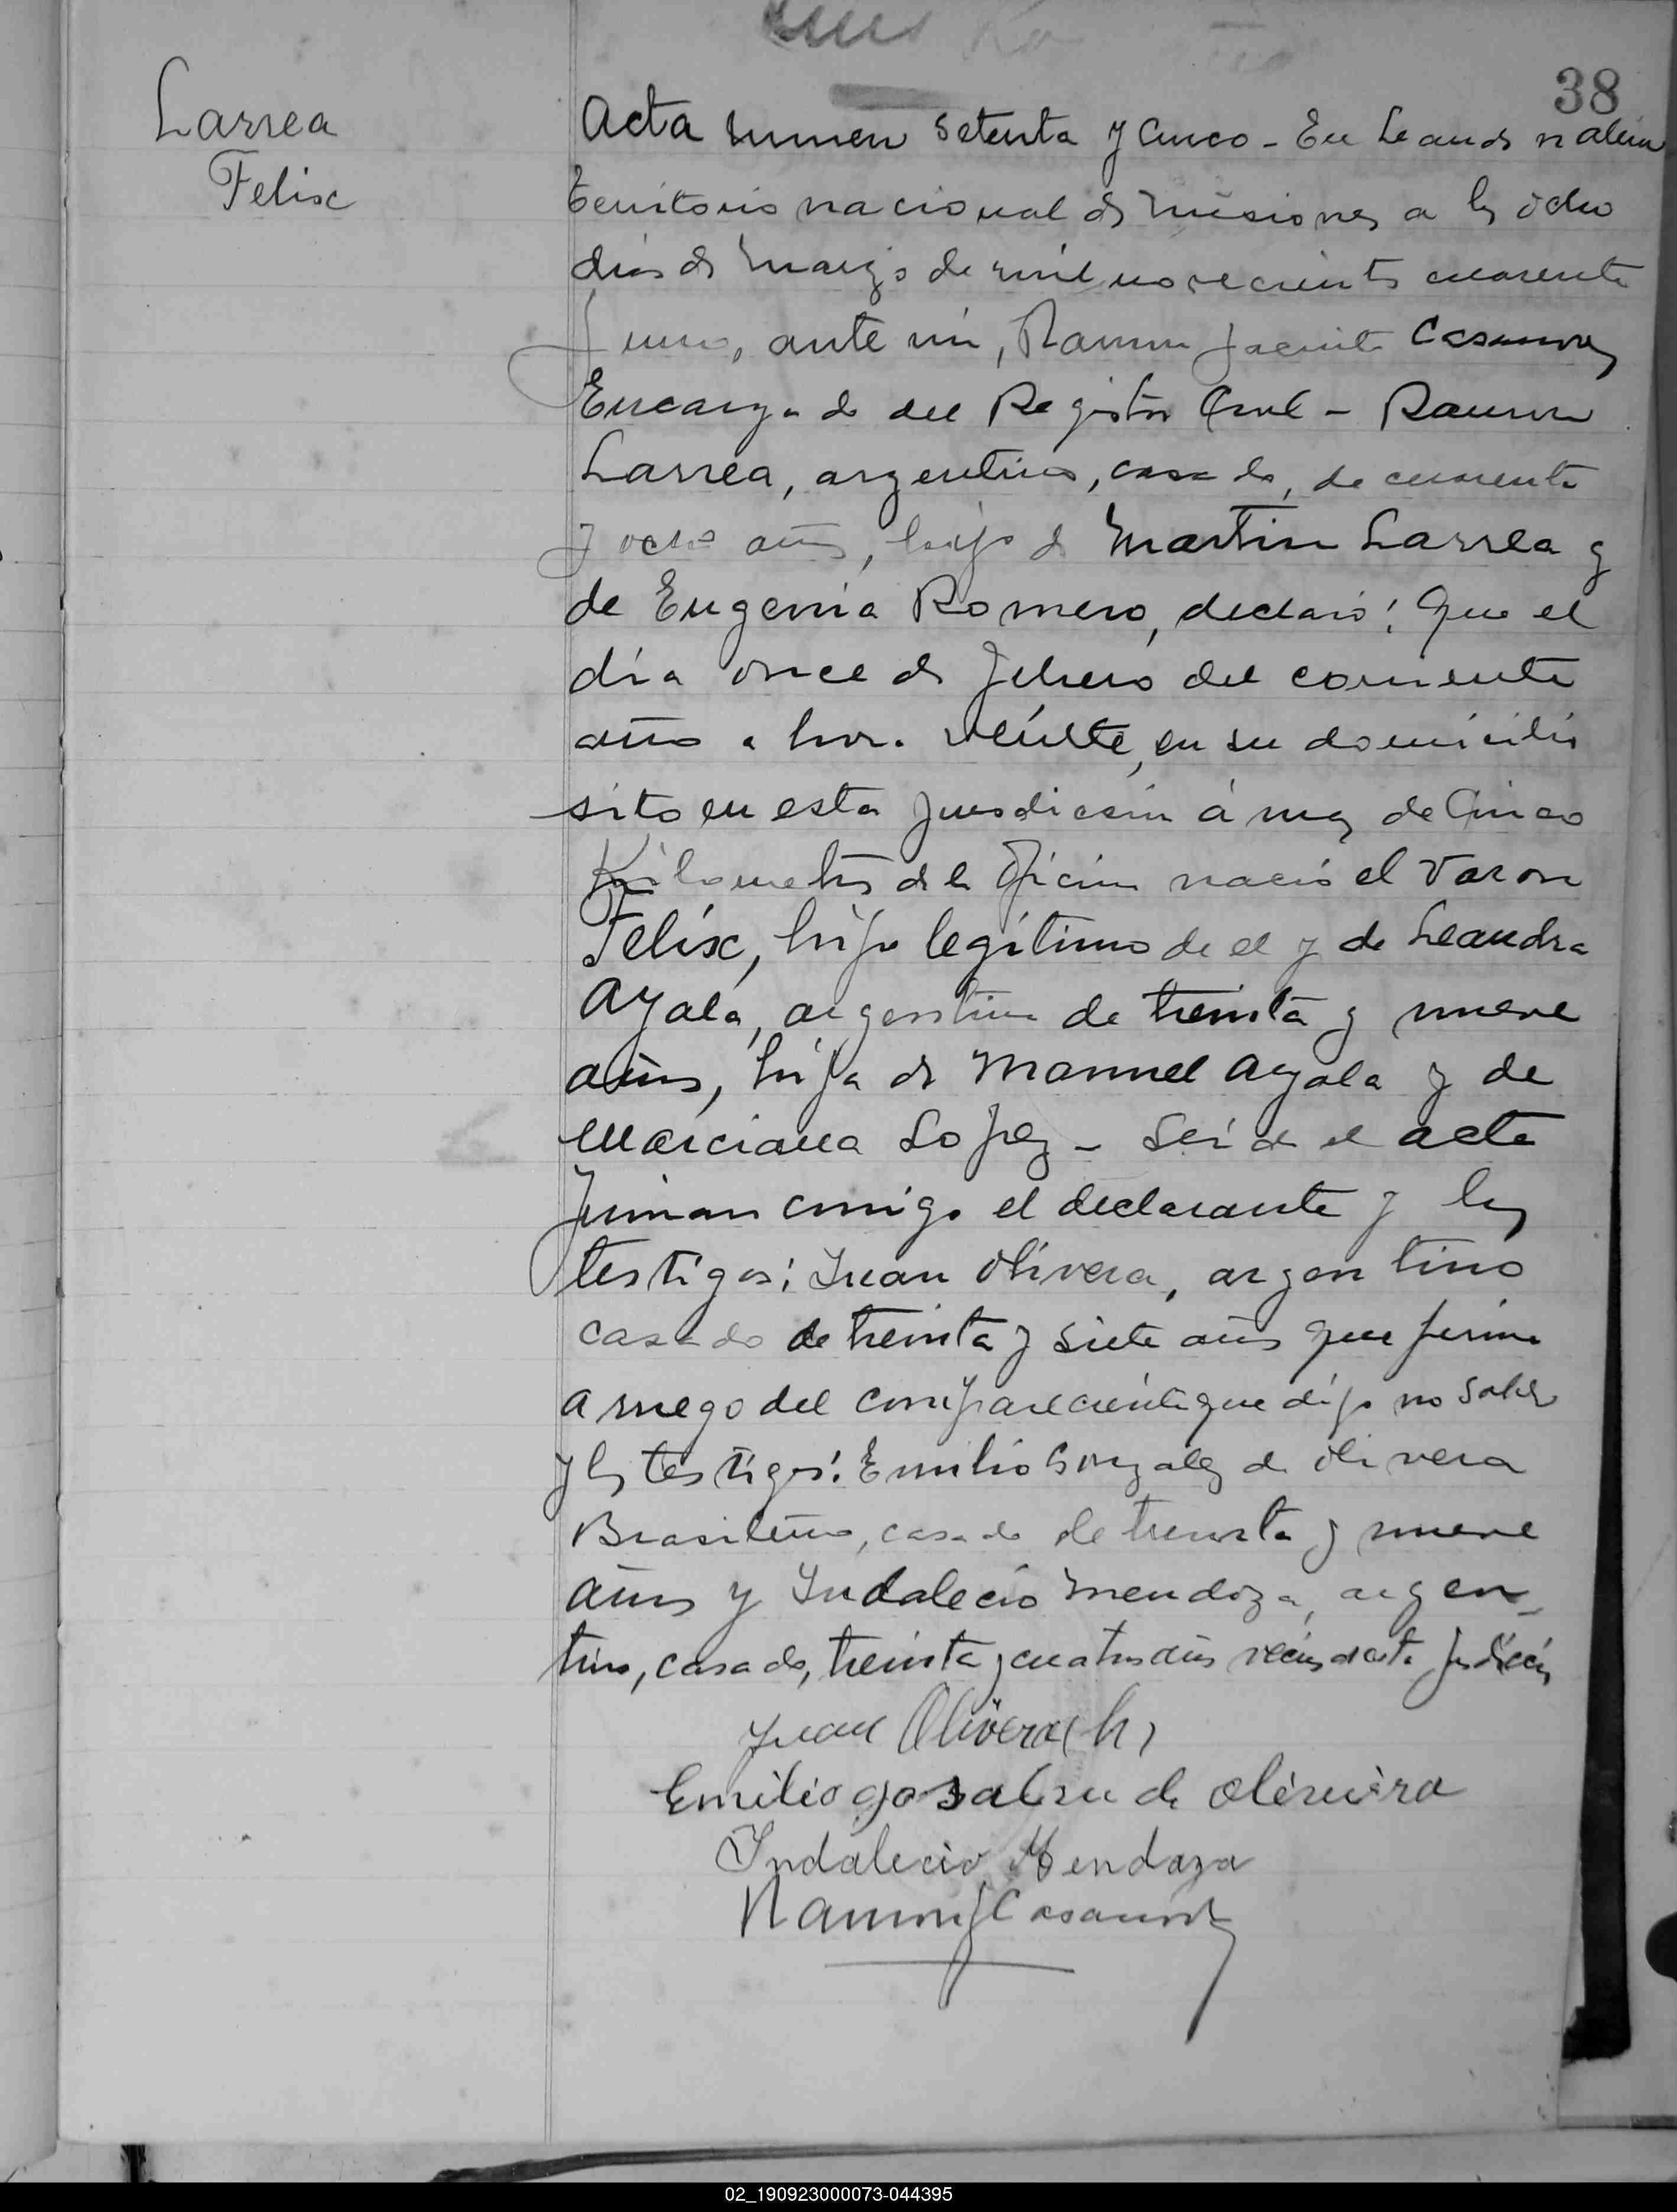 38
Larrea
Felix
Acta numero setenta y cinco - En Leandro n alem
territorio nacional de misiones a los ocho
dias de marzo de mil novecientos cuarenta
y uno, ante mi, Ramon Jacinto Casanova
Encargado del Registro Civil - Ramon
Larrea, argentino, casado, de cuarenta
y ocho años, hijo de Martin Larrea y
de Eugenia Romero, declaró: Que el
día once de febrero del corriente
año a hora veinte, en su domicilio
sito en esta jurisdicion á mas de Cinco
Kilometros de la oficina nació el varon
Felix, hijo legítimo de el y de Leandra
Ayala, argentina de treinta y nueve
años, hija de Manuel Ayala y de
Marciana Lopez - Leida el acta
firman conmigo el declarante y los
testigos: Juan Olivera, argentino
casado de treinta y siete años que firma
a ruego del compareciente que dijo no saber
y los testigos: Emilio Gonzalez de Olivera
Brasileño, casado de treinta y nueve
años y Indalecio Mendoza, argen-
tino, casado, treinta y cuatro años vecinos de esta
Juan Olivera (h)
Emilio de oliveira
Indalecio Mendoza
Ramon J Casanova
02_190923000073-044395